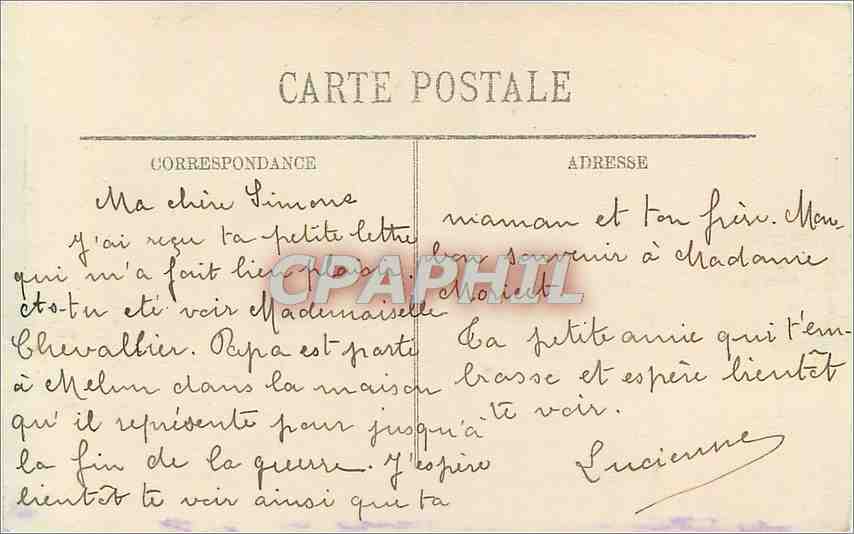 CARTE POSTALE
CORRESPONDANCE
Ma chère Simone
J'ai reçu ta petite lettre
qui m'a fait bien plaisir.
As-tu été voir Mademoiselle
Chevallier. Papa est parti
à Melun dans la maison
qu'il représente pour jusqu'à
la fin de la guerre. J'espère
bientôt te voir ainsi que ta
ADRESSE
maman et ton frère. Mon
bon souvenir à Madame
Moricet
Ta petite amie qui t'em-
brasse et espère bientôt
te voir.
Lucienne
CPAPHIL